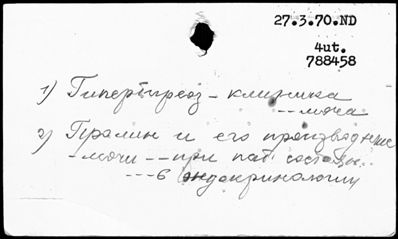 27.3.70.ND
4ut.
788458
1) Гипертиреоз - клиника
--- моча
2) Пролин и его производные
- мочи -- при пат. состоян.
--- в эндокринологии